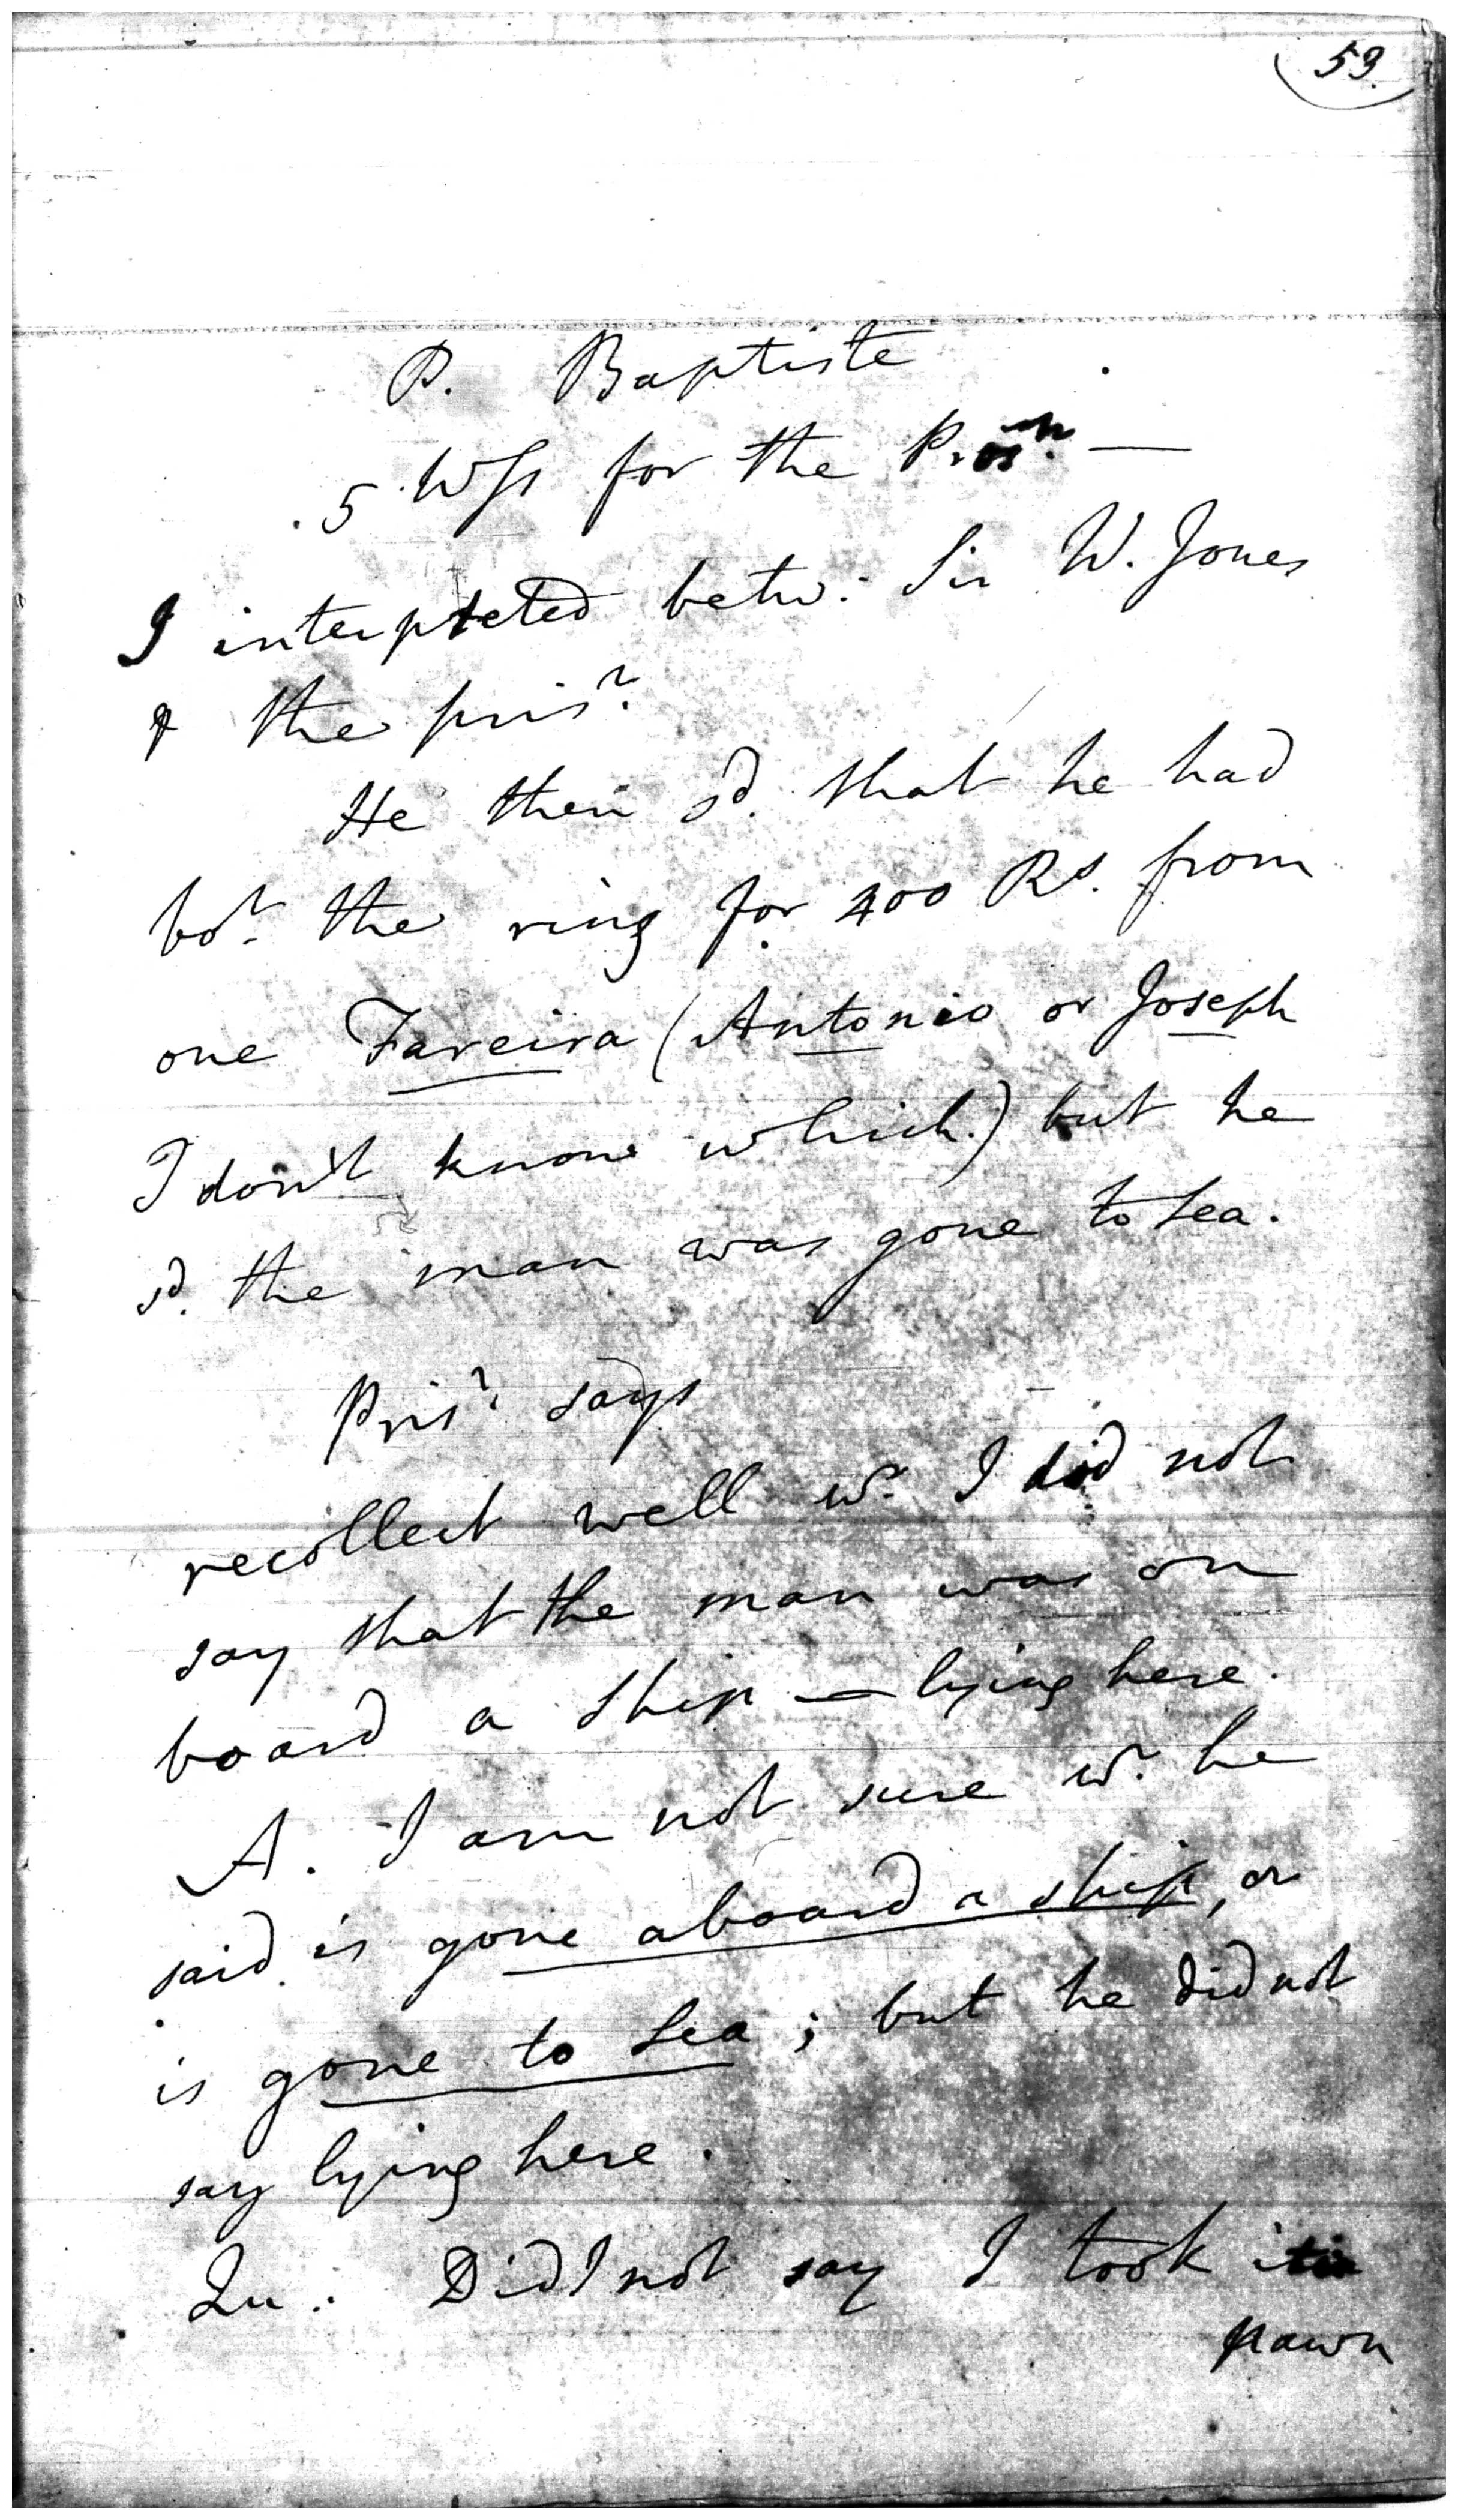 53.
P. Baptiste
5. Wss for the Pros.n —
I interpreted betw: Sir W. Jones
& the pris.r
He then sd. that he had
bot. the ring for 400 Rs. from
one Fareira (Antonio or Joseph
I don't know which.) but he
sd. the man was gone to sea.
Pris.r says
recollect well wr. I did not
say that the man was on
board a ship — lying here.
A. I am not sure wr. he
said is gone aboard a ship, or
is gone to sea; but he did not
say lying here.
Qu: Did I not say I took it in
pawn